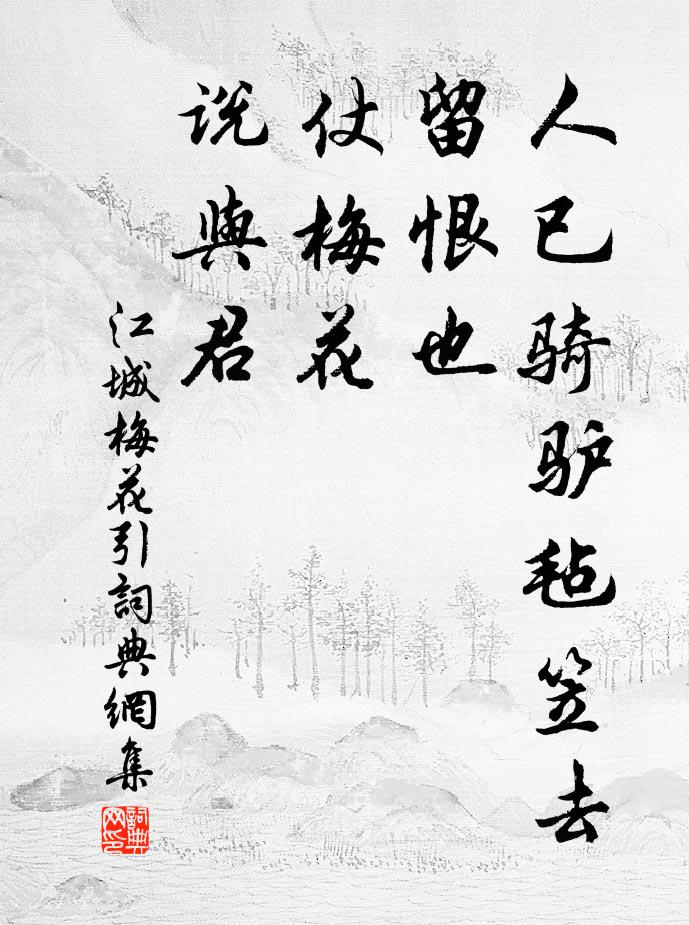 人已骑驴毡笠去
留恨也
仗梅花
说與君
江城梅花引詞典網集
詞典
网印